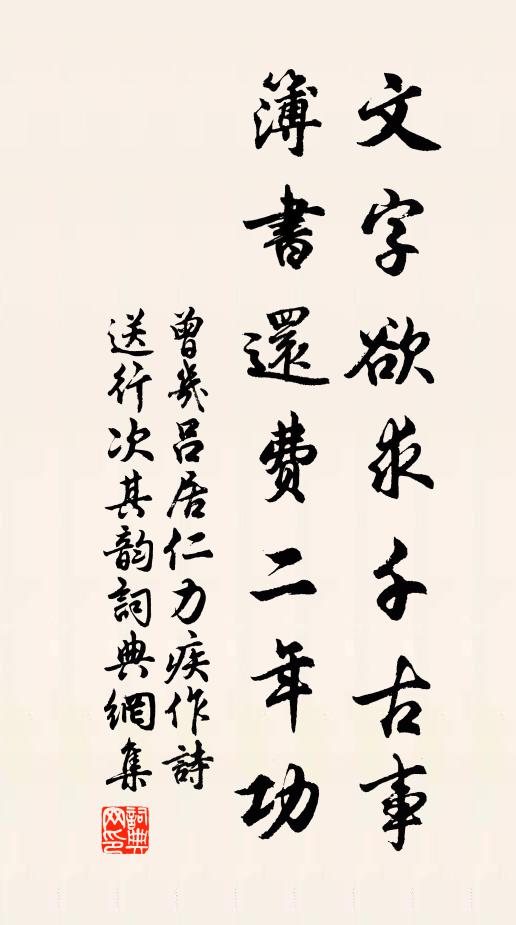 文字欲求千古事
簿書還費二年功
曾幾呂居仁力疾作詩
送行次其韵詞典網集
詞典網印